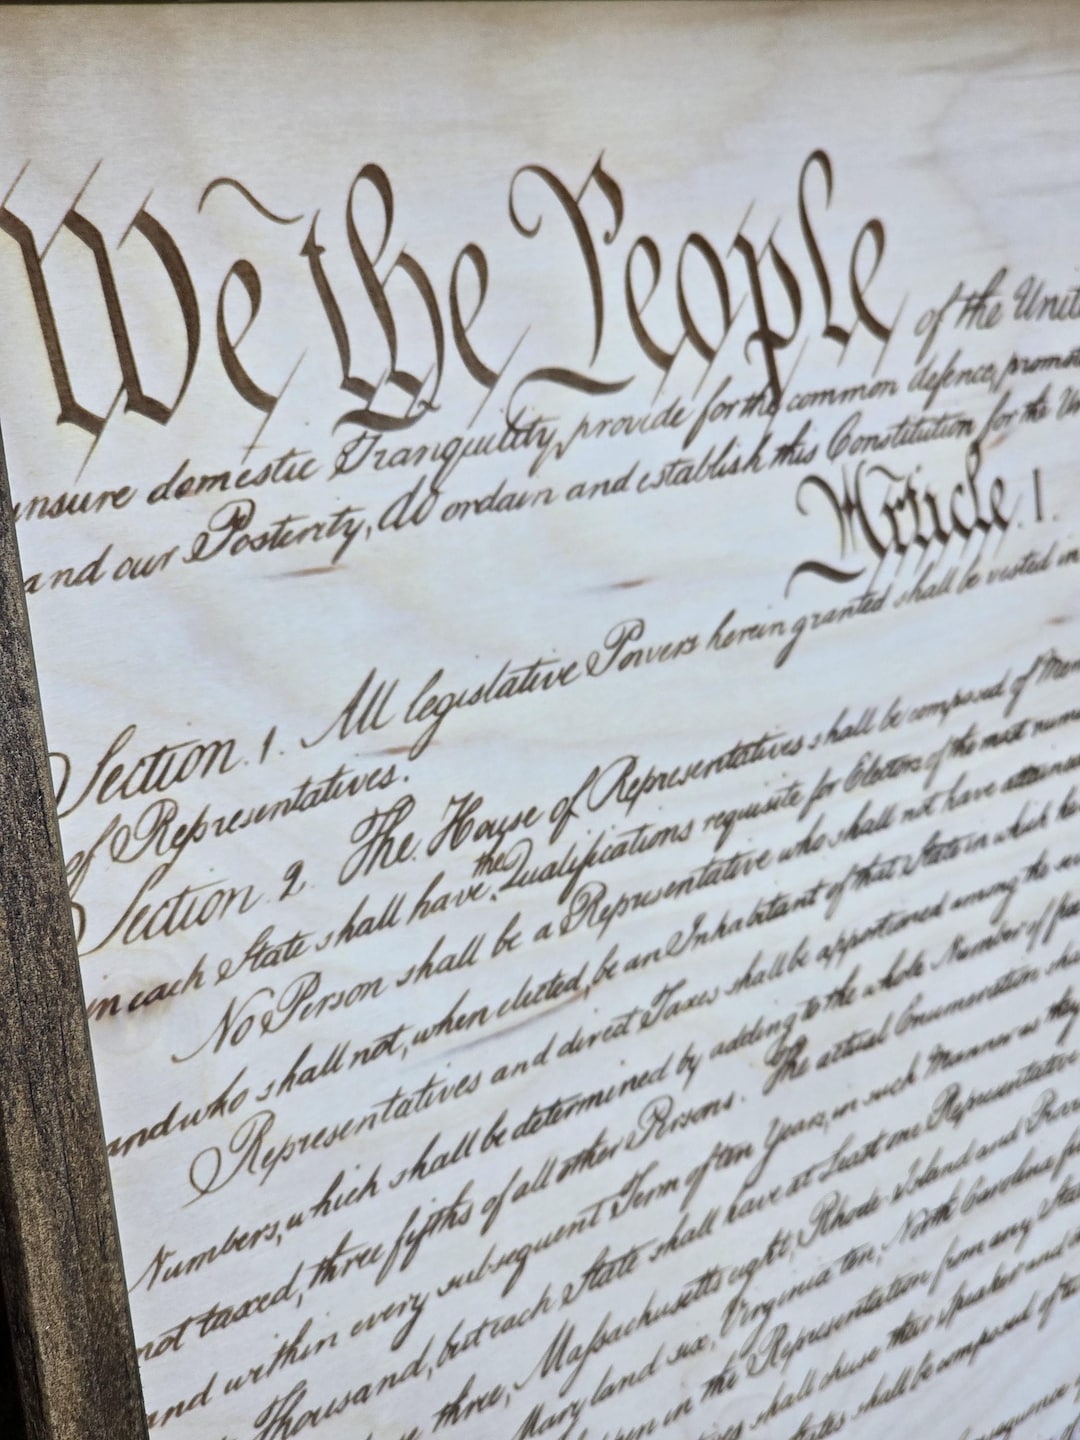 We the People of the Unit
insure domestic Tranquility, provide for the common defence, promot
and our Posterity, do ordain and establish this Constitution for the Un
Article. I.
Section. 1. All legislative Powers herein granted shall be vested in
of Representatives.
Section. 2. The House of Representatives shall be composed of Mem
in each State shall have the Qualifications requisite for Electors of the most nume
No Person shall be a Representative who shall not have attained
and who shall not, when elected, be an Inhabitant of that State in which he
Representatives and direct Taxes shall be apportioned among the
Numbers, which shall be determined by adding to the whole Number of free
not taxed, three fifths of all other Persons. The actual Enumeration sha
and within every subsequent Term of ten Years, in such Manner as they
Thousand, but each State shall have at Least one Representative
three, Massachusetts eight, Rhode-Island and Prov
Maryland six, Virginia ten, North Carolina
in the Representation from any State
shall chuse their Speaker and
shall be composed of